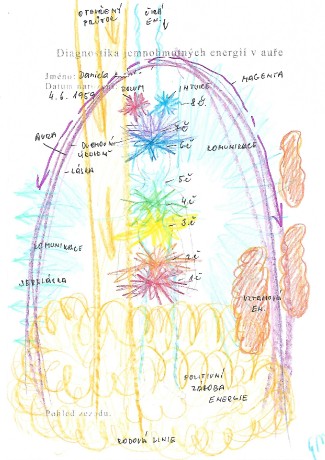 OTEVŘENÝ
PRŮTOK
ČISTÁ
EN.
Diagnostika jemnohmotných energií v auře
Jméno: Daniela
Datum
4.6.1959
ROZUM
INTUICE
MAGENTA
8.č
AURA
7.č
DUCHOVNÍ
6.č
KOMUNIKACE
LÁSKA
5.č
4.č
3.č
KOMUNIKACE
SEBELÁSKA
2.č
1.č
VZTAHOVÁ
EN.
POZITIVNÍ
ZÁSOBA
ENERGIE
Pohled zezadu.
RODOVÁ LINIE